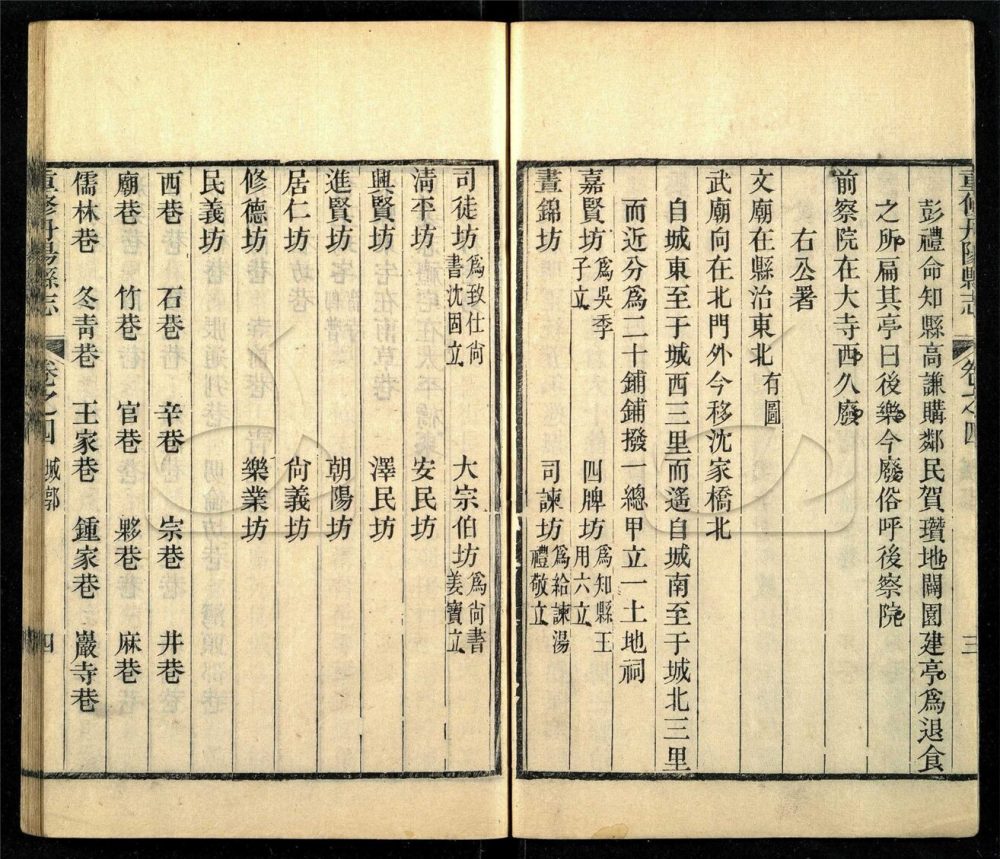 重修丹陽縣志 卷之四 三
彭禮命知縣高謙購鄰民賀瓚地闢園建亭爲退食
之所扁其亭曰後樂今廢俗呼後察院
前察院在大寺西久廢
右公署
文廟在縣治東北有圖
武廟向在北門外今移沈家橋北
自城東至于城西三里而遙自城南至于城北三里
而近分爲二十鋪鋪撥一總甲立一土地祠
嘉賢坊爲吳季子立 四牌坊爲知縣王用六立
晝錦坊 司諫坊爲給諫湯禮敬立
司徒坊爲致仕尙書沈固立 大宗伯坊爲尙書姜寶立
淸平坊 安民坊
興賢坊 澤民坊
進賢坊 朝陽坊
居仁坊 尙義坊
修德坊 樂業坊
民義坊
西巷 石巷 辛巷 宗巷 井巷
廟巷 竹巷 官巷 夥巷 麻巷
儒林巷 冬靑巷 王家巷 鍾家巷 巖寺巷
重修丹陽縣志 卷之四 城郭 四